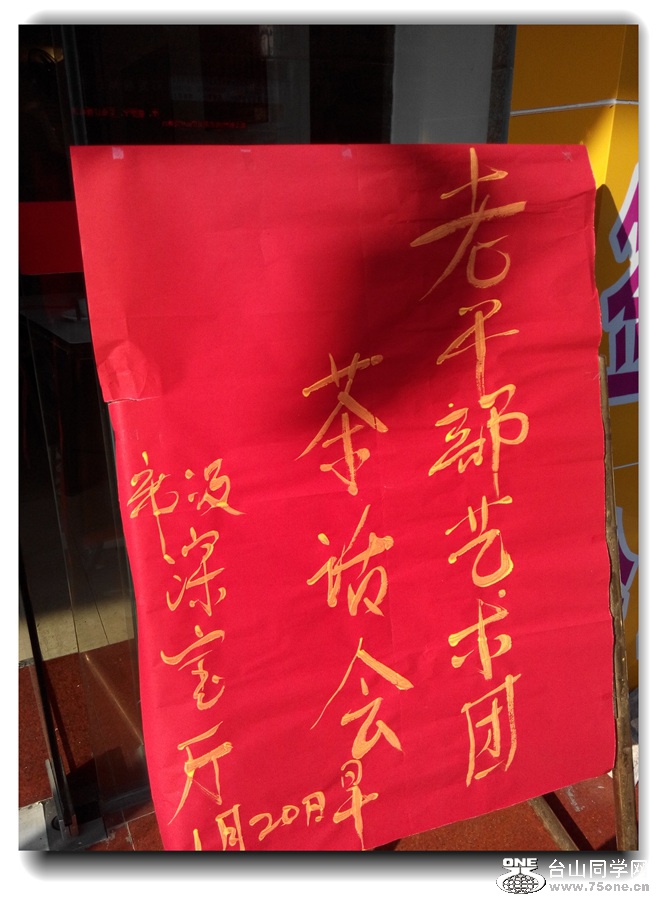 老干部艺术团
茶话会
席设
深宝厅
1月20日早
ONE
台山同学网
www.75one.cn